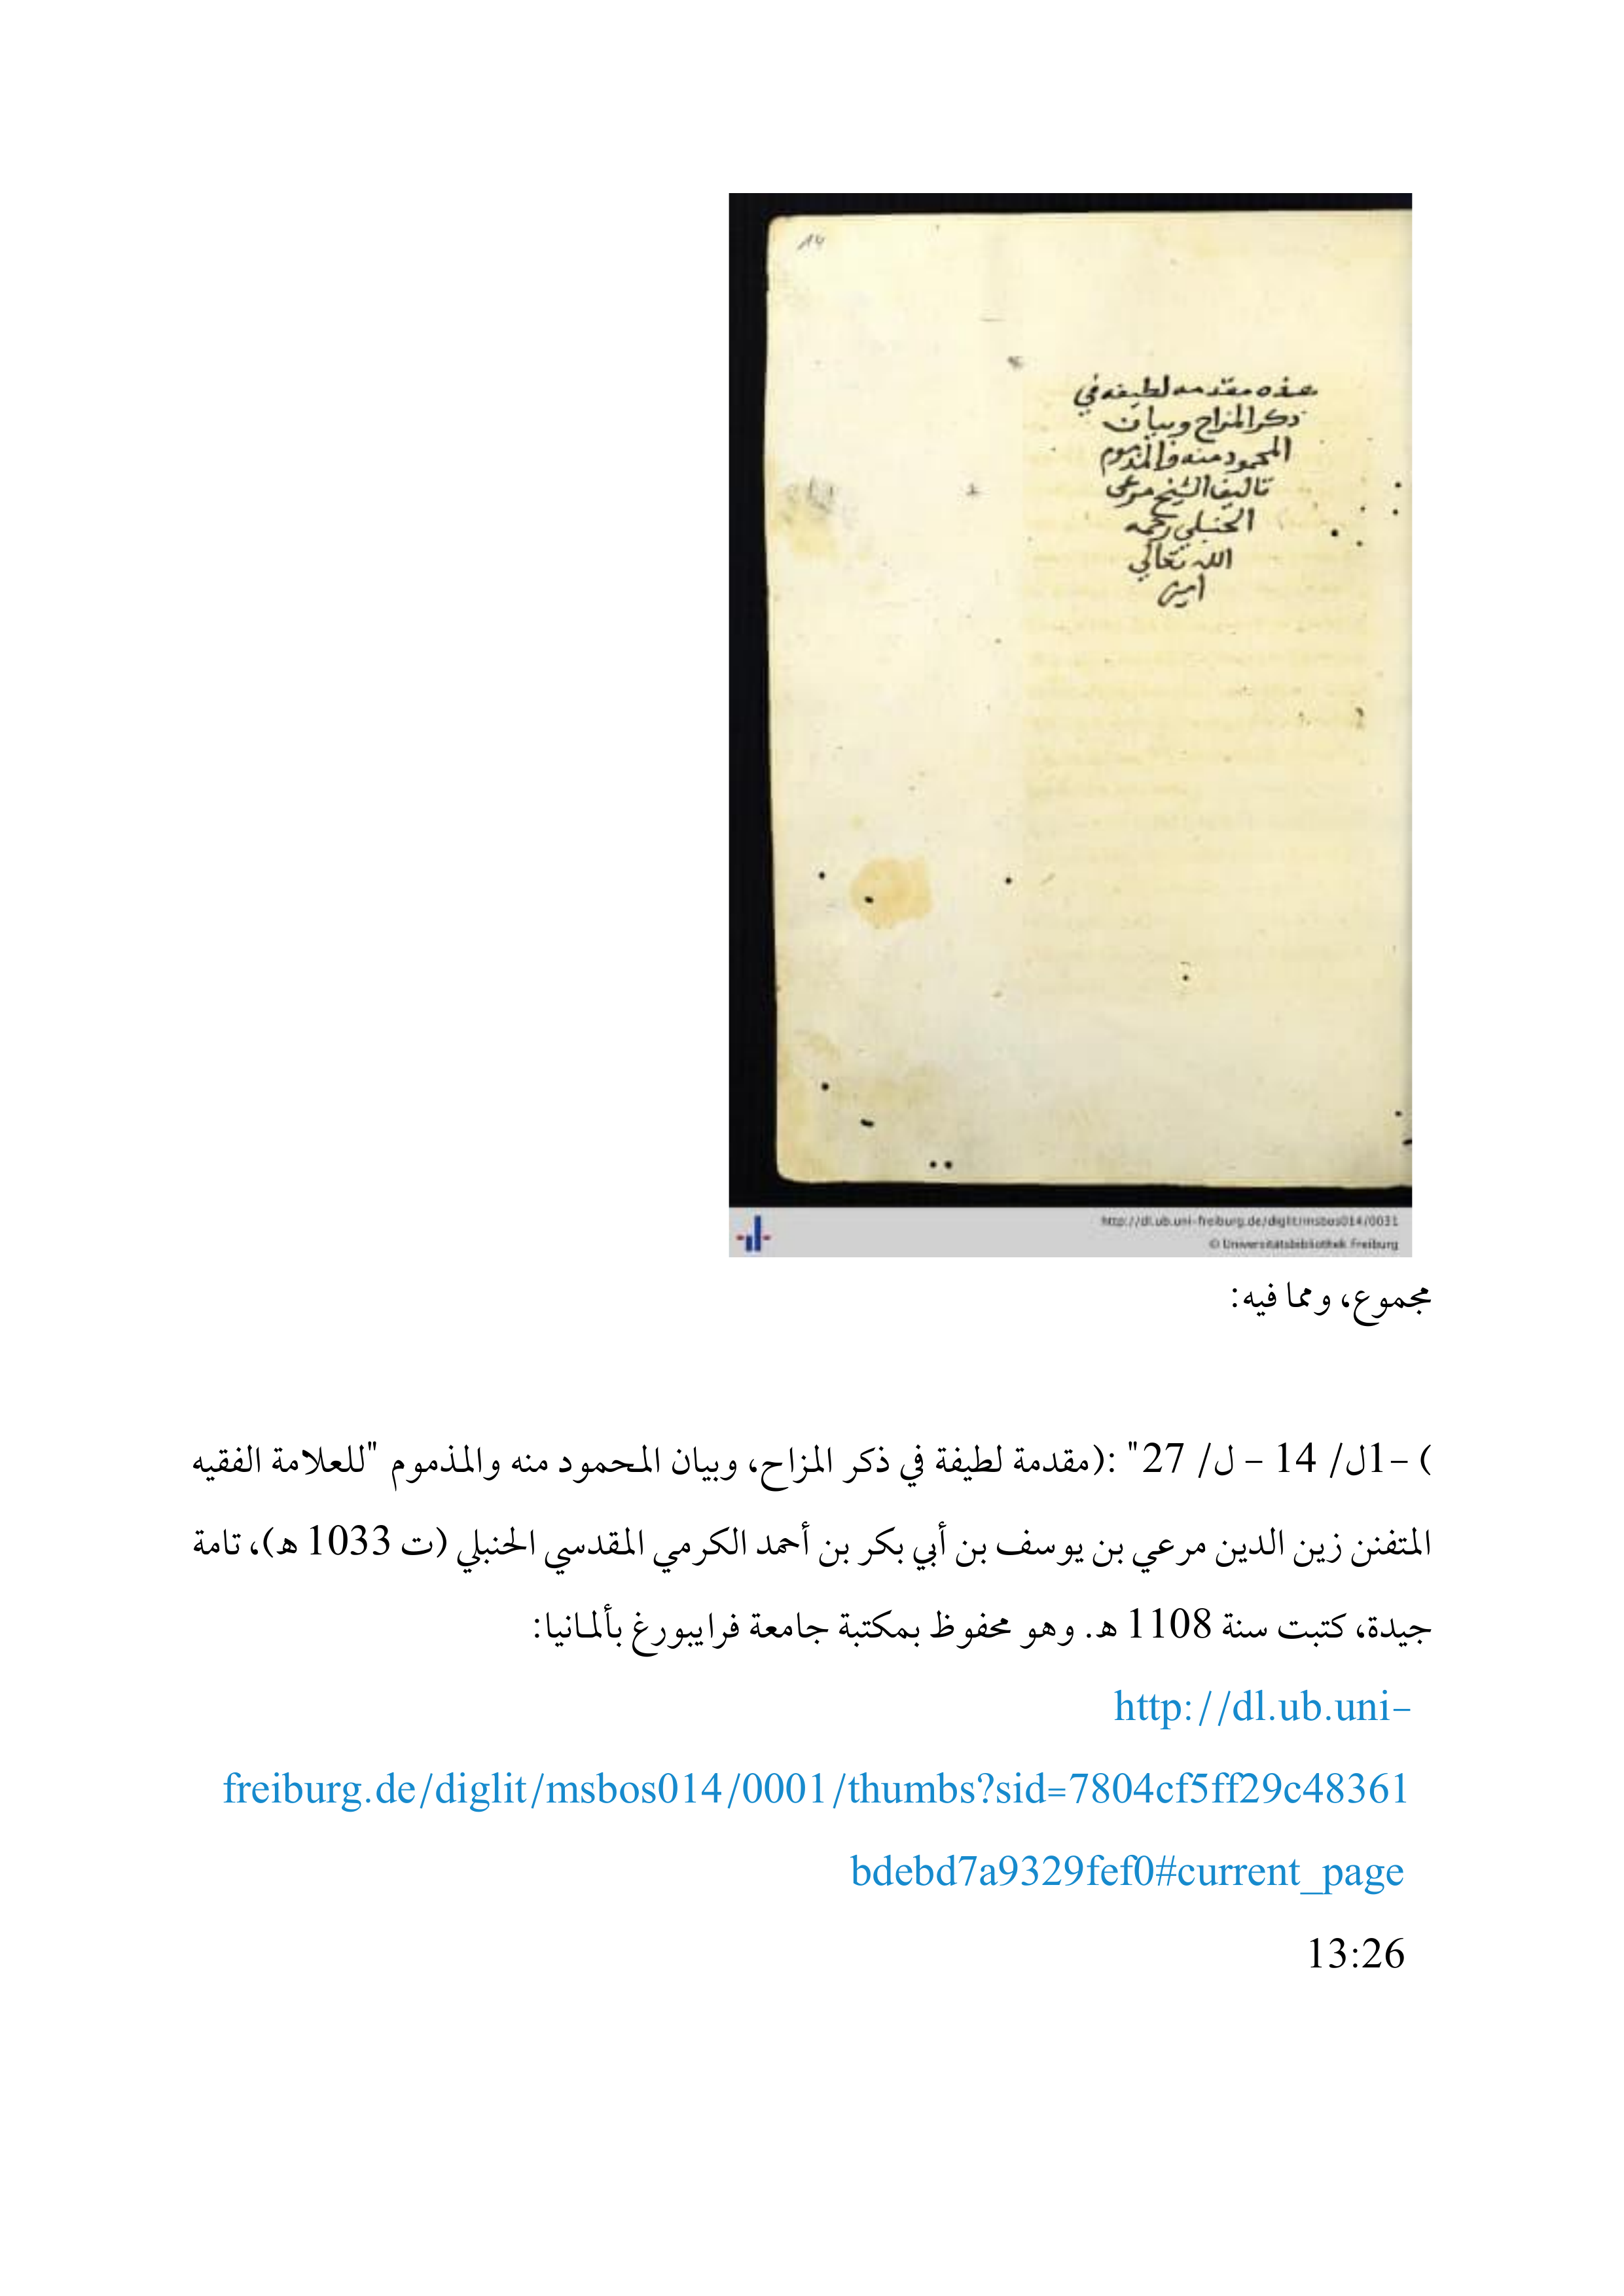 14
هذه مقدمه لطيفه في
ذكر المزاح وبيان
المحمود منه والمذموم
تاليف الشيخ مرعي
الحنبلي رحمه
الله تعالي
امين
http://dl.ub.uni-freiburg.de/diglit/msbos014/0031
© Universitätsbibliothek Freiburg
مجموع، ومما فيه:
) –1ل/ 14 – ل/ 27" :(مقدمة لطيفة في ذكر المزاح، وبيان المحمود منه والمذموم "للعلامة الفقيه
المتفنن زين الدين مرعي بن يوسف بن أبي بكر بن أحمد الكرمي المقدسي الحنبلي (ت 1033 ه)، تامة
جيدة، كتبت سنة 1108 ه. وهو محفوظ بمكتبة جامعة فرايبورغ بألمانيا:
http://dl.ub.uni-
freiburg.de/diglit/msbos014/0001/thumbs?sid=7804cf5ff29c48361
bdebd7a9329fef0#current_page
13:26